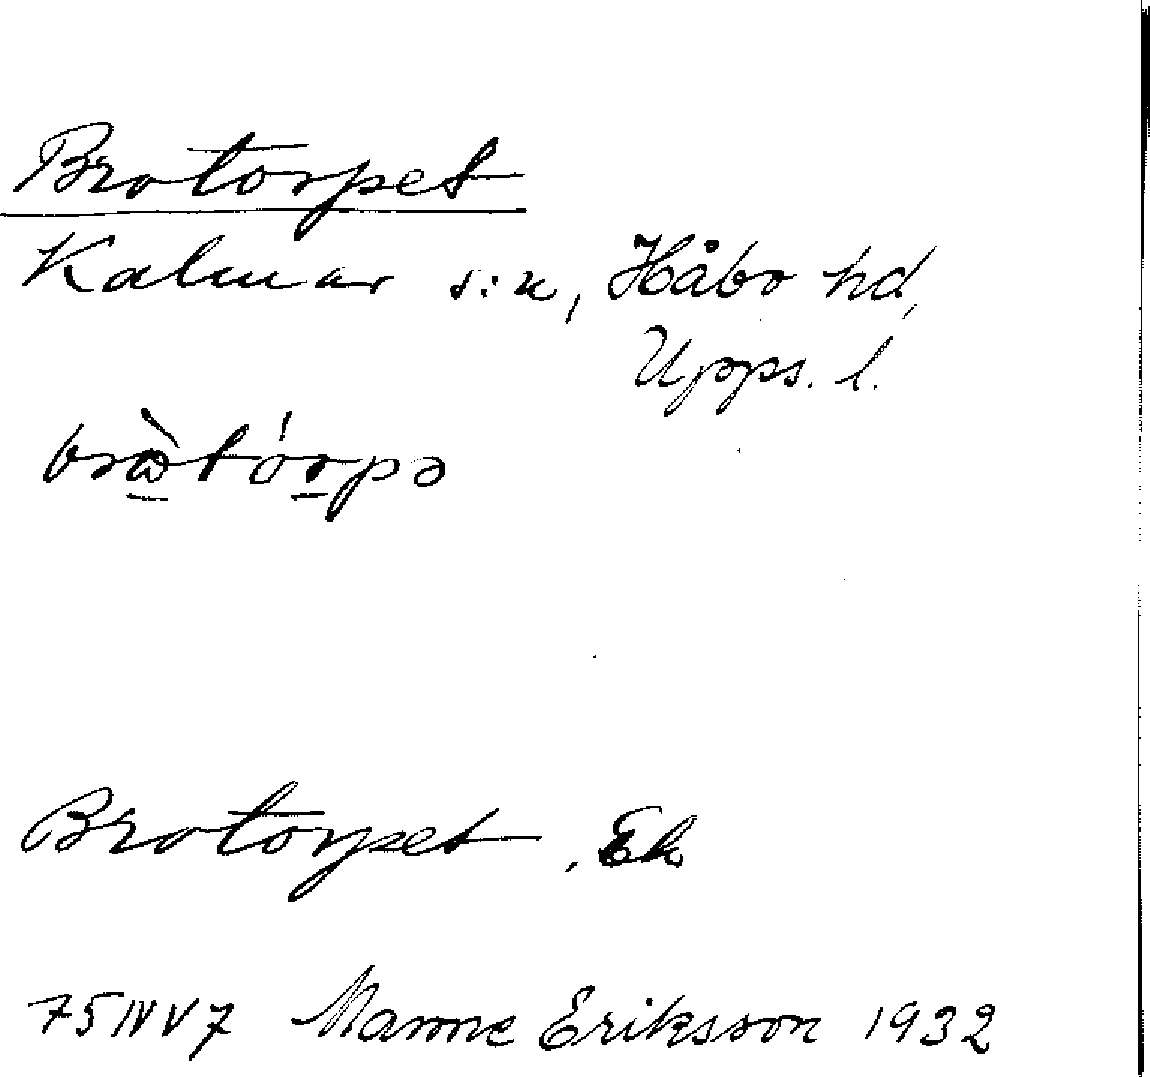 Brotorpet
Kalmar s:n, Håbo hd,
Upps. l.
Brotorpet, Ek
75 NV V 7 Manne Eriksson 1932